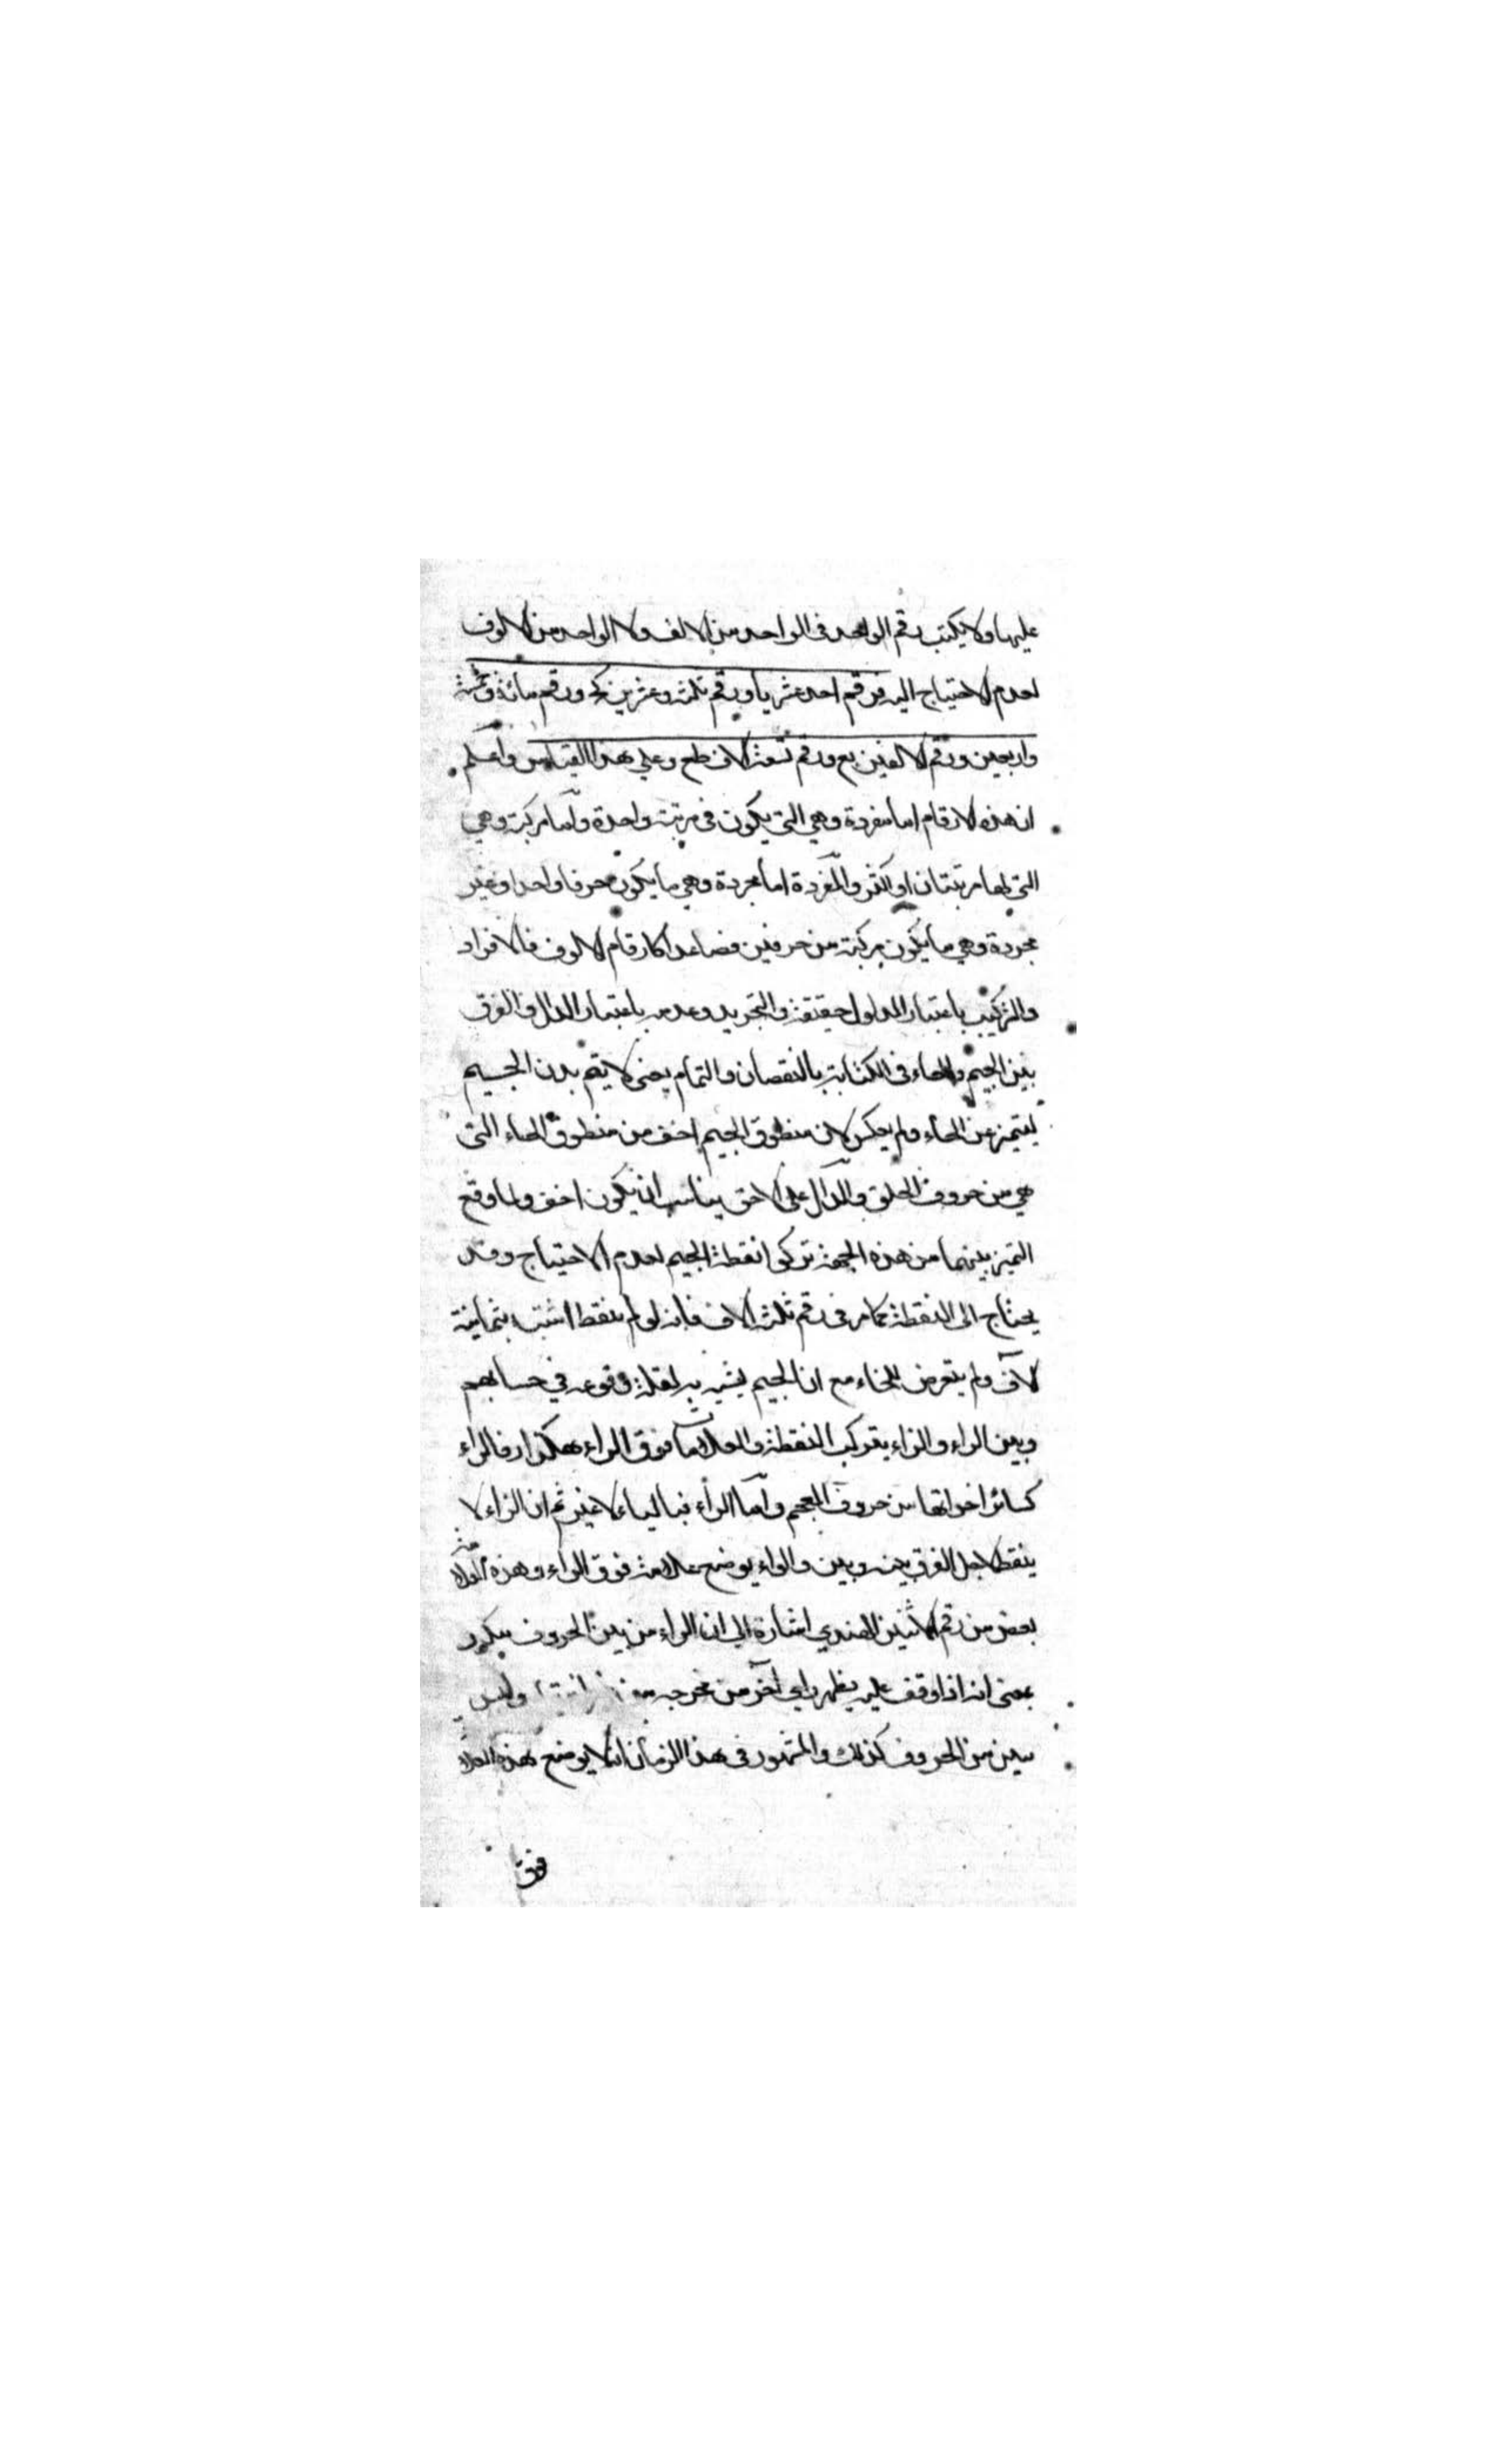 عليها ولا يكتب رقم الواحد فى الواحد من الالف ولا الواحد من الالوف
لعدم الاحتياج اليه فرقم احد عشر يا ورقم ثلثة وعشرين كج ورقم مائة وخمسة
واربعين ورقم الالفين بغ ورقم تسعة الاف طغ وعلى هذا القياس واعلم
ان هذه الارقام اما مفردة وهي التى يكون فى مرتبة واحدة واما مركبة وهي
التى لها مرتبتان او اكثر والمفردة اما مجردة وهي ما يكون حرفا واحدا وغير
مجردة وهي ما يكون مركبة من حرفين فصاعدا كارقام الالوف فالافراد
والتركيب باعتبار المدلول حقيقة والتجريد وعدمه باعتبار الدال والفرق
بين الجيم والحاء فى الكتابة بالنقصان والتمام يعنى لا يتم بدن الجيم
ليتميز عن الحاء ولم يعكس لان منطوق الجيم اخف من منطوق الحاء التى
هي من حروف الحلق والدال على الاخف يناسب ان يكون اخف ولما وقع
التميز بينهما من هذه الجهة تركوا نقطة الجيم لعدم الاحتياج وقد
يحتاج الى النقطة كما مر فى رقم ثلثة الاف فانه لو لم ينقط اشتبه بثمانية
الاف ولم يتعرض للخاء مع ان الجيم يشبه به لقلة وقوعه في حسابهم
وبين الراء والزاء بترك النقطة والعلامة فوق الراء هكذا ر فالراء
كسائر اخواتها من حروف المعجم واما الزاء فبالياء لا غير ثم ان الزاء لا
ينقط لاجل الفرق بينه وبين والراء يوضع علامة فوق الراء وهذه العلامة
بعض من رقم الاثنين الهندي اشارة الى ان الراء من بين الحروف مكرر
بمعنى انه اذا وقف عليه يظهر راء آخر من مخرجه وليس
من الحروف كذلك والمشهور فى هذا الزمان ان لا يوضع هذه العلامة
فوق